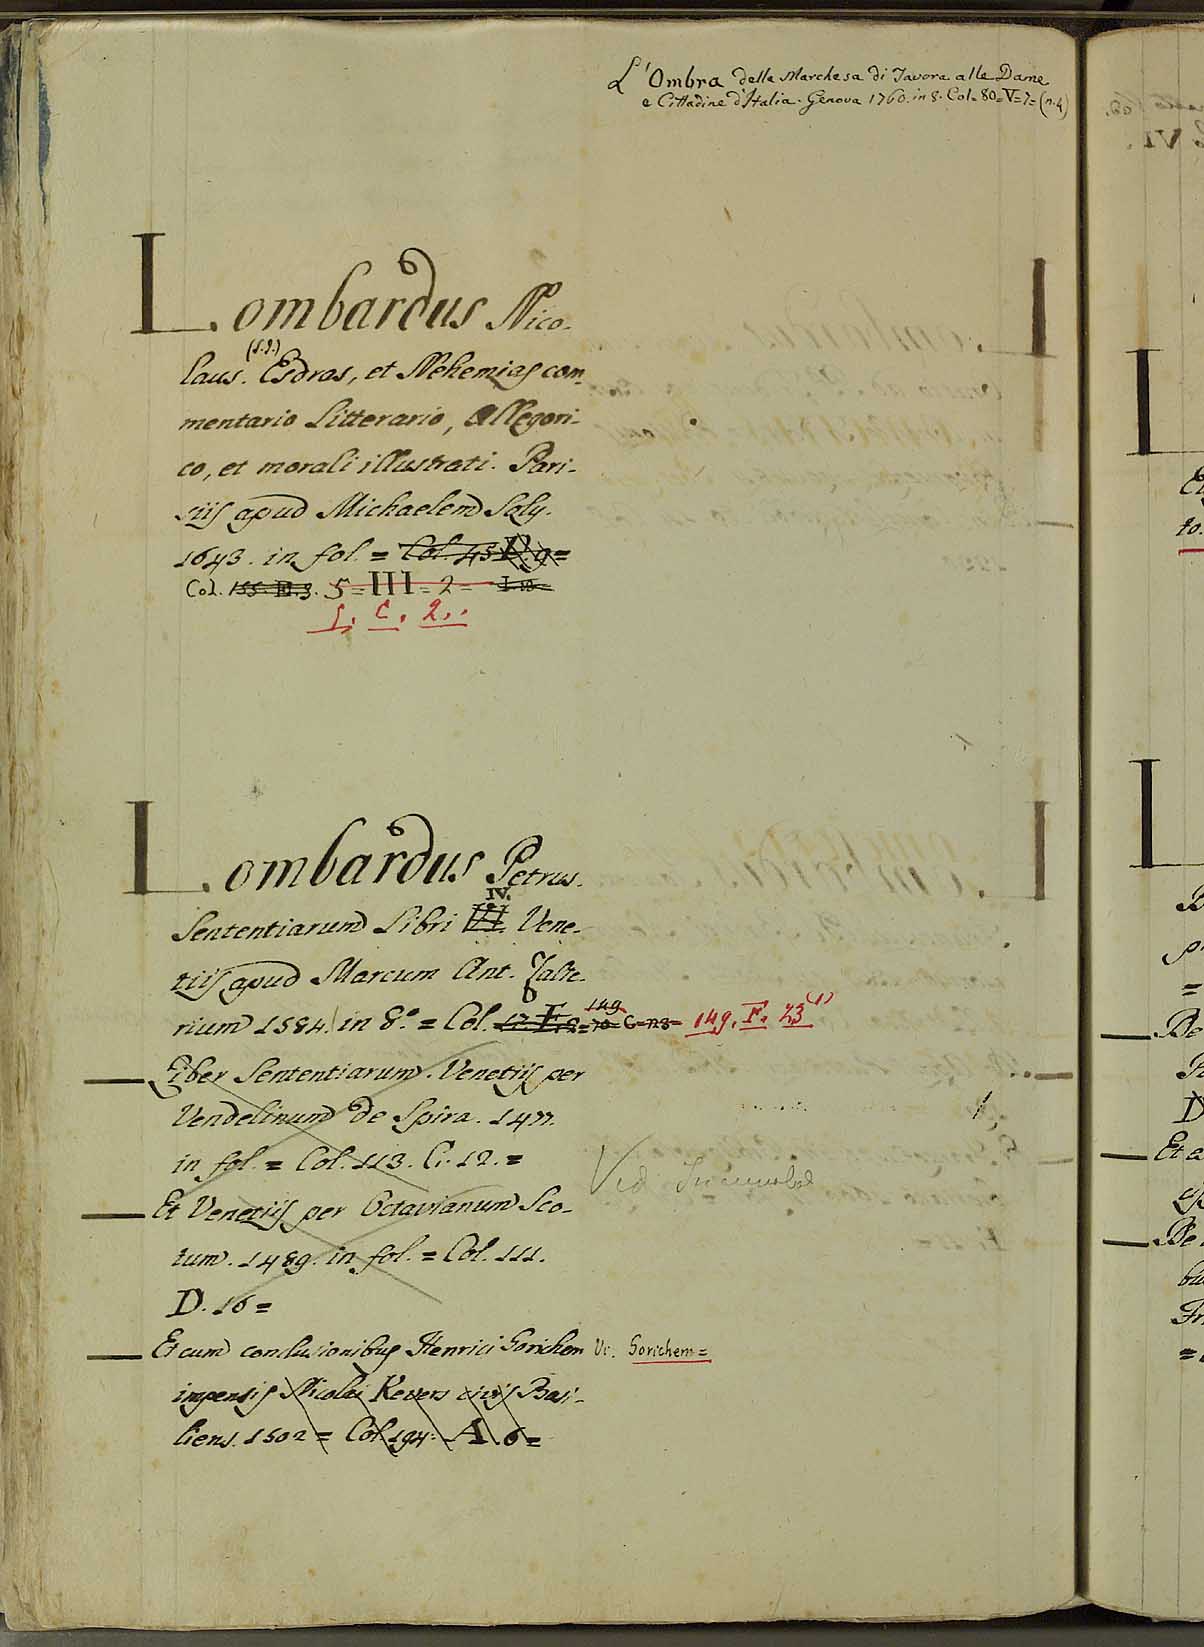 L'Ombra della Marchesa di Tavora alle Dame
e Cittadine d'Italia. Genova 1760. in 8. Col. 80=V=7=(n.4)
Lombardus Nico-
laus. (S.J.) Esdras, et Nehemias com-
mentario Litterario, Allegori-
co, et morali illustrati. Pari-
siis apud Michaelem Soly.
1643. in fol. = Col. 45 P. 9=
Col. 155. E. 3. 5=III=2=
5. C. 2..
Lombardus Petrus.
IV.
Sententiarum Libri VI. Vene-
tiis apud Marcum Ant. Zalte-
149
rium 1584. in 8.° = Col. 17. F. 2=70=C=n.8= 149. F. 23 (1)
Liber Sententiarum. Venetiis per
Vendelinum de Spira. 1477.
in fol. = Col. 113. C. 12. =
Vid Incunabol
Et Venetiis per Octavianum Sco-
tum. 1489. in fol. = Col. 111.
D. 16 =
Et cum conclusionibus Henrici Gorichem V. Gorichem=
impensis Nicolai Kevers civis Basi-
liens. 1502 = Col. 194. A. 6 =